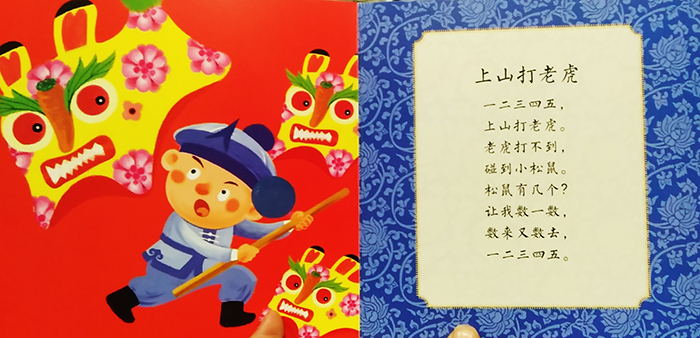 上山打老虎
一二三四五，
上山打老虎。
老虎打不到，
碰到小松鼠。
松鼠有几个？
让我数一数，
数来又数去，
一二三四五。